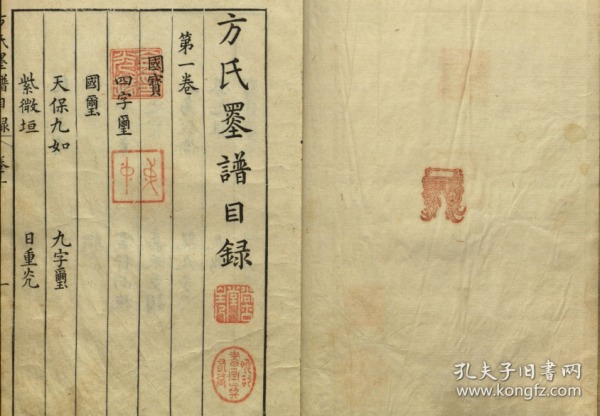 方氏墨譜目録
第一卷
國寶
四字璽
國璽
天保九如 九字璽
紫微垣 日重光
方氏墨譜目録 卷一 一
孔夫子旧书网
www.kongfz.com